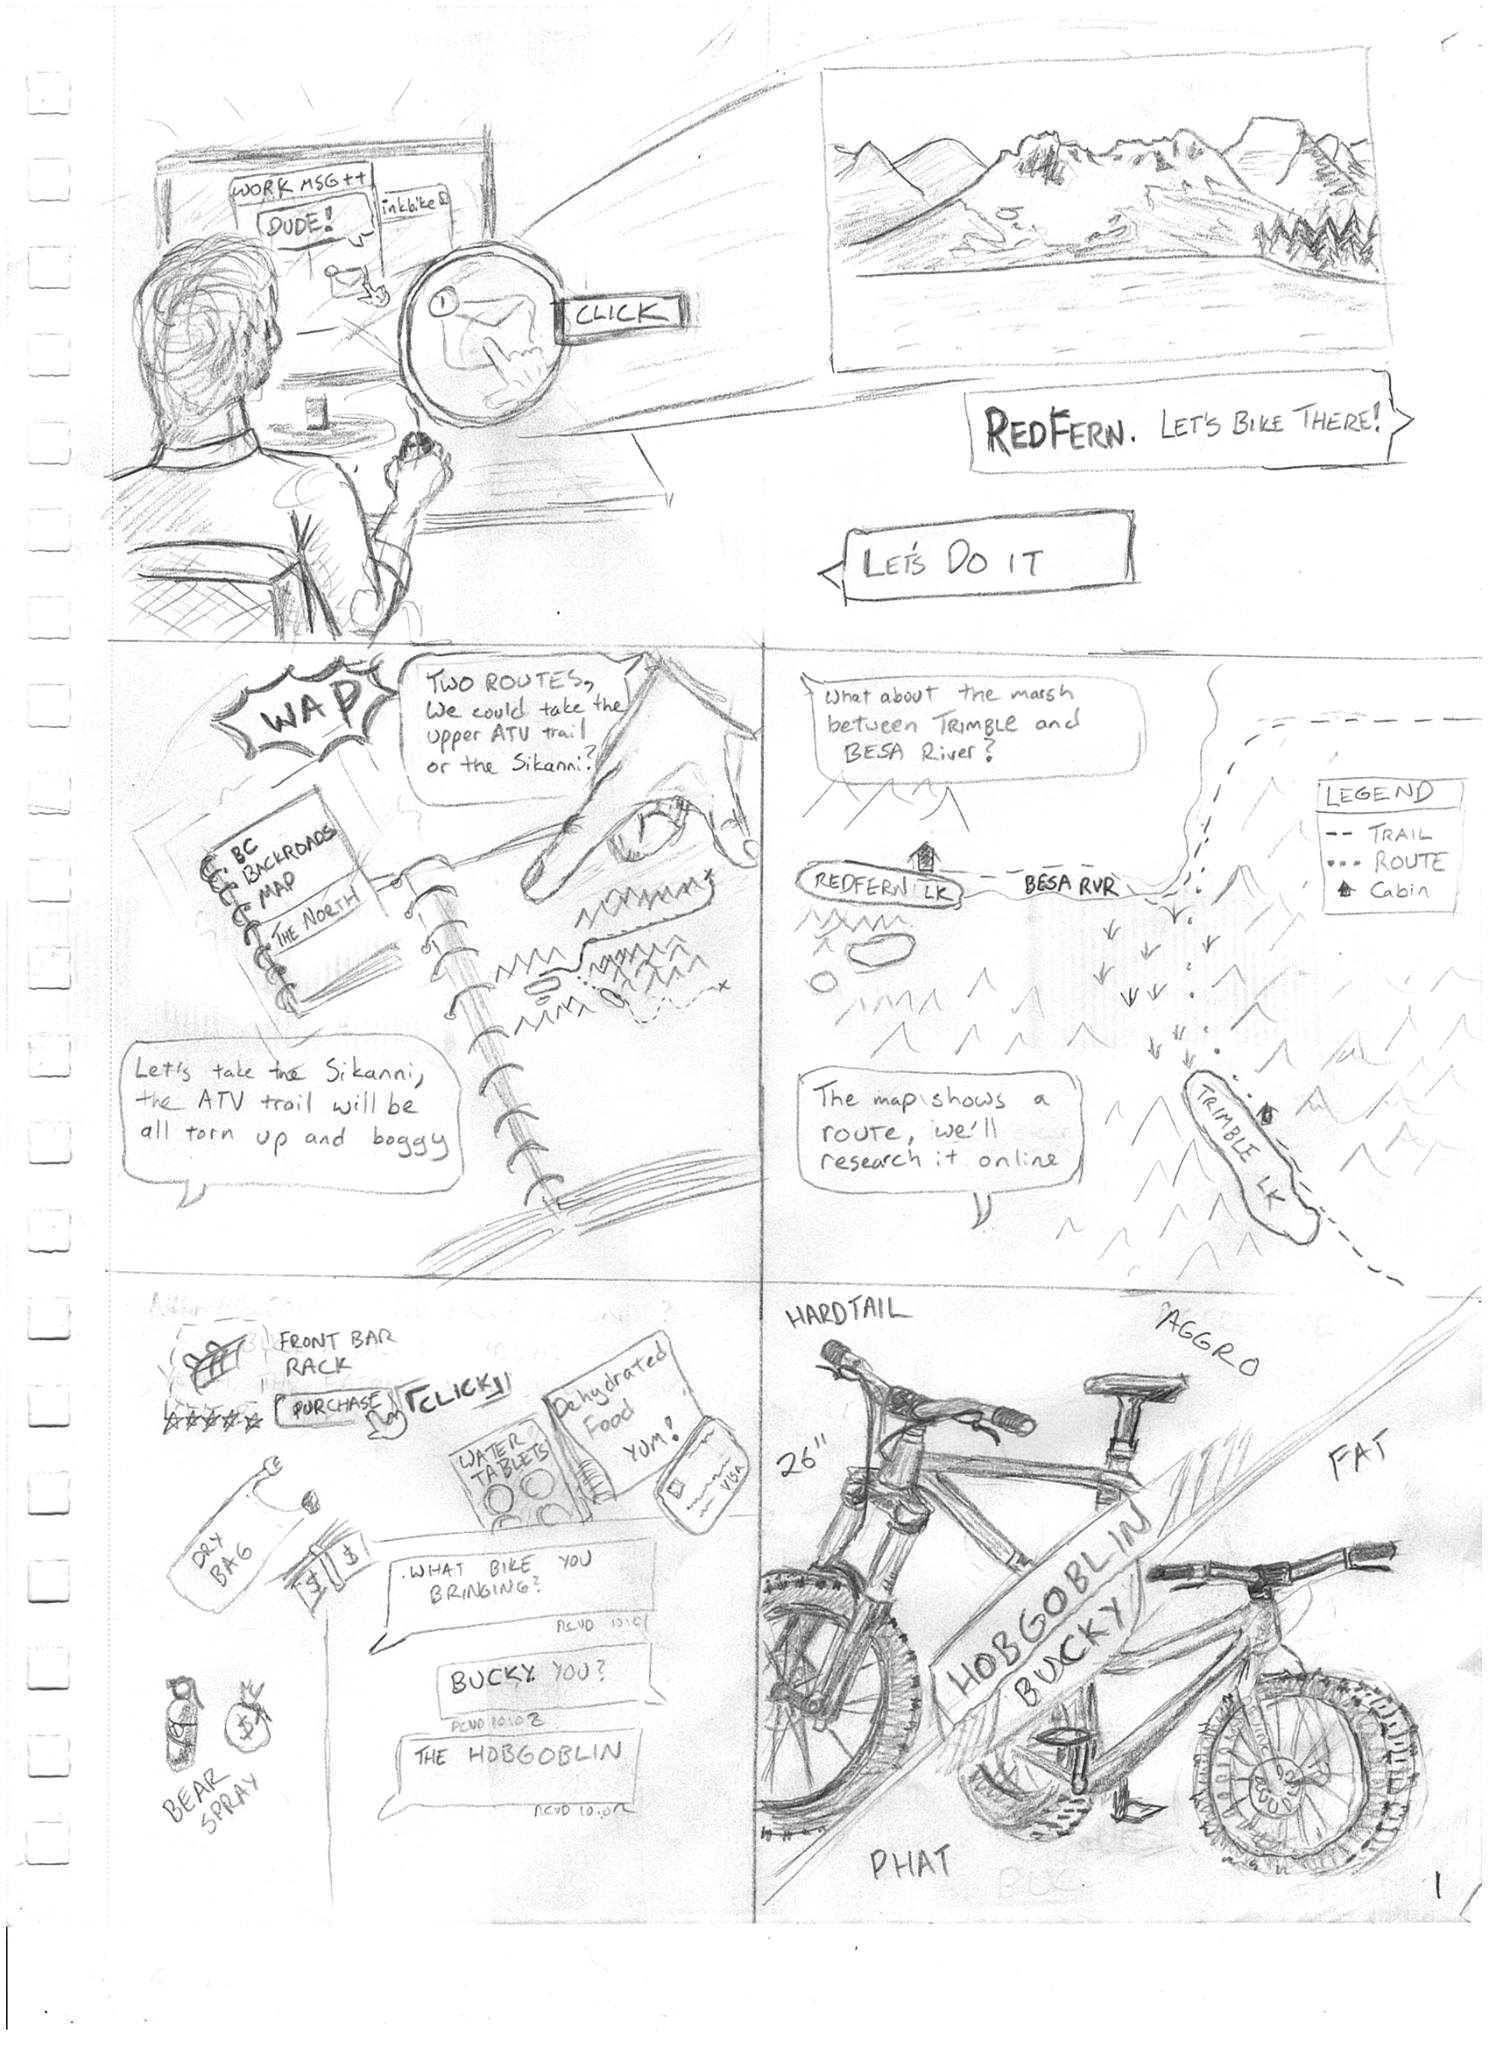 WORK MSG ++
DUDE!
inkbike
1
CLICK
REDFERN. LET'S BIKE THERE!
LET'S DO IT
WAP
TWO ROUTES,
We could take the
upper ATV trail
or the Sikanni?
BC
BACKROADS
MAP
THE NORTH
Let's take the Sikanni,
the ATV trail will be
all torn up and boggy
What about the marsh
between TRIMBLE and
BESA River?
LEGEND
TRAIL
ROUTE
Cabin
REDFERN LK
BESA RVR
The map shows a
route, we'll
research it online
TRIMBLE LK
FRONT BAR
RACK
PURCHASE
CLICK!!
WATER
TABLETS
Dehydrated
Food
YUM!
VISA
DRY
BAG
$ $
WHAT BIKE YOU
BRINGING?
RCVD
BUCKY. YOU?
RCVD 10:02
THE HOBGOBLIN
RCVD
$
BEAR
SPRAY
HARDTAIL
AGGRO
26"
FAT
HOBGOBLIN
BUCKY
PHAT
1